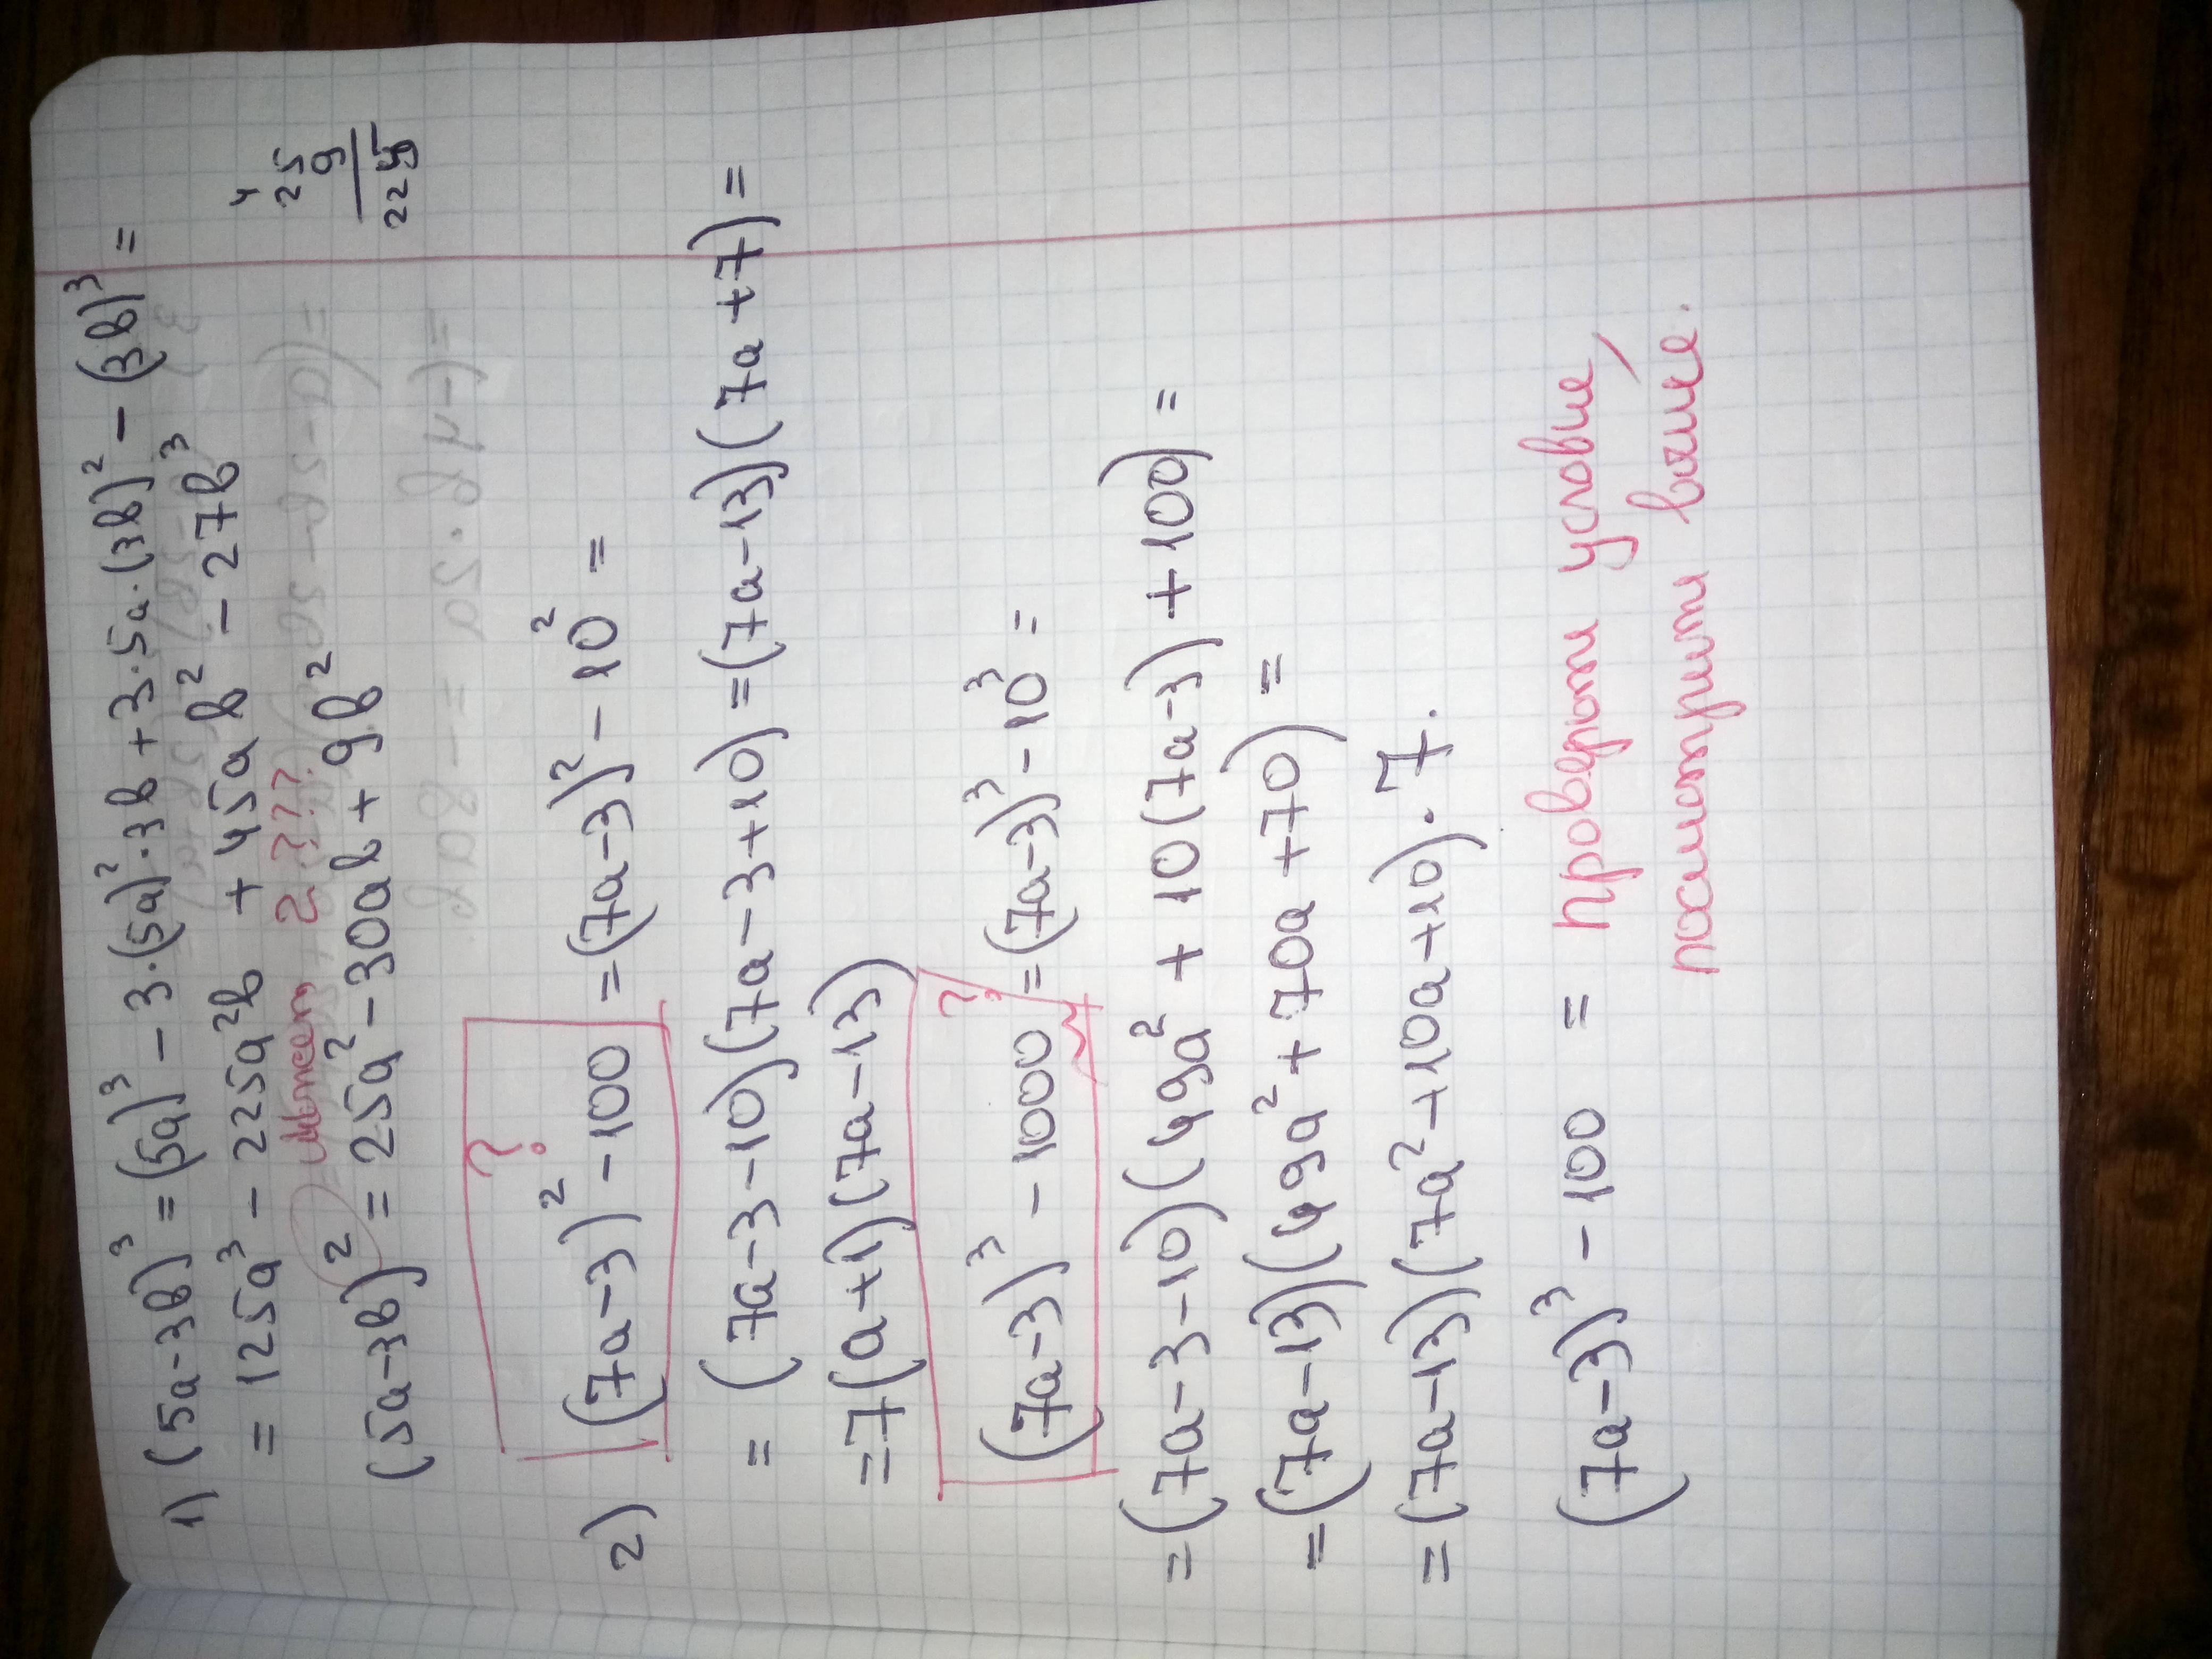 1) (5a-3b)³ = (5a)³ - 3·(5a)²·3b + 3·5a·(3b)² - (3b)³ =
= 125a³ - 225a²b + 45ab² - 27b³
4
25
9
225
= 2???
(5a-3b)² = 25a² - 30ab + 9b²
?
2) (7a-3)² - 100 = (7a-3)² - 10² =
= (7a-3-10)(7a-3+10) = (7a-13)(7a+7) =
= 7(a+1)(7a-13)
?
(7a-3)³ - 1000 = (7a-3)³ - 10³ =
= (7a-3-10)(49a² + 10(7a-3) + 100) =
= (7a-13)(49a² + 70a + 70) =
= (7a-13)(7a² + 10a + 10)·7.
(7a-3)³ - 100 = проверти условие,
посмотрити выше.